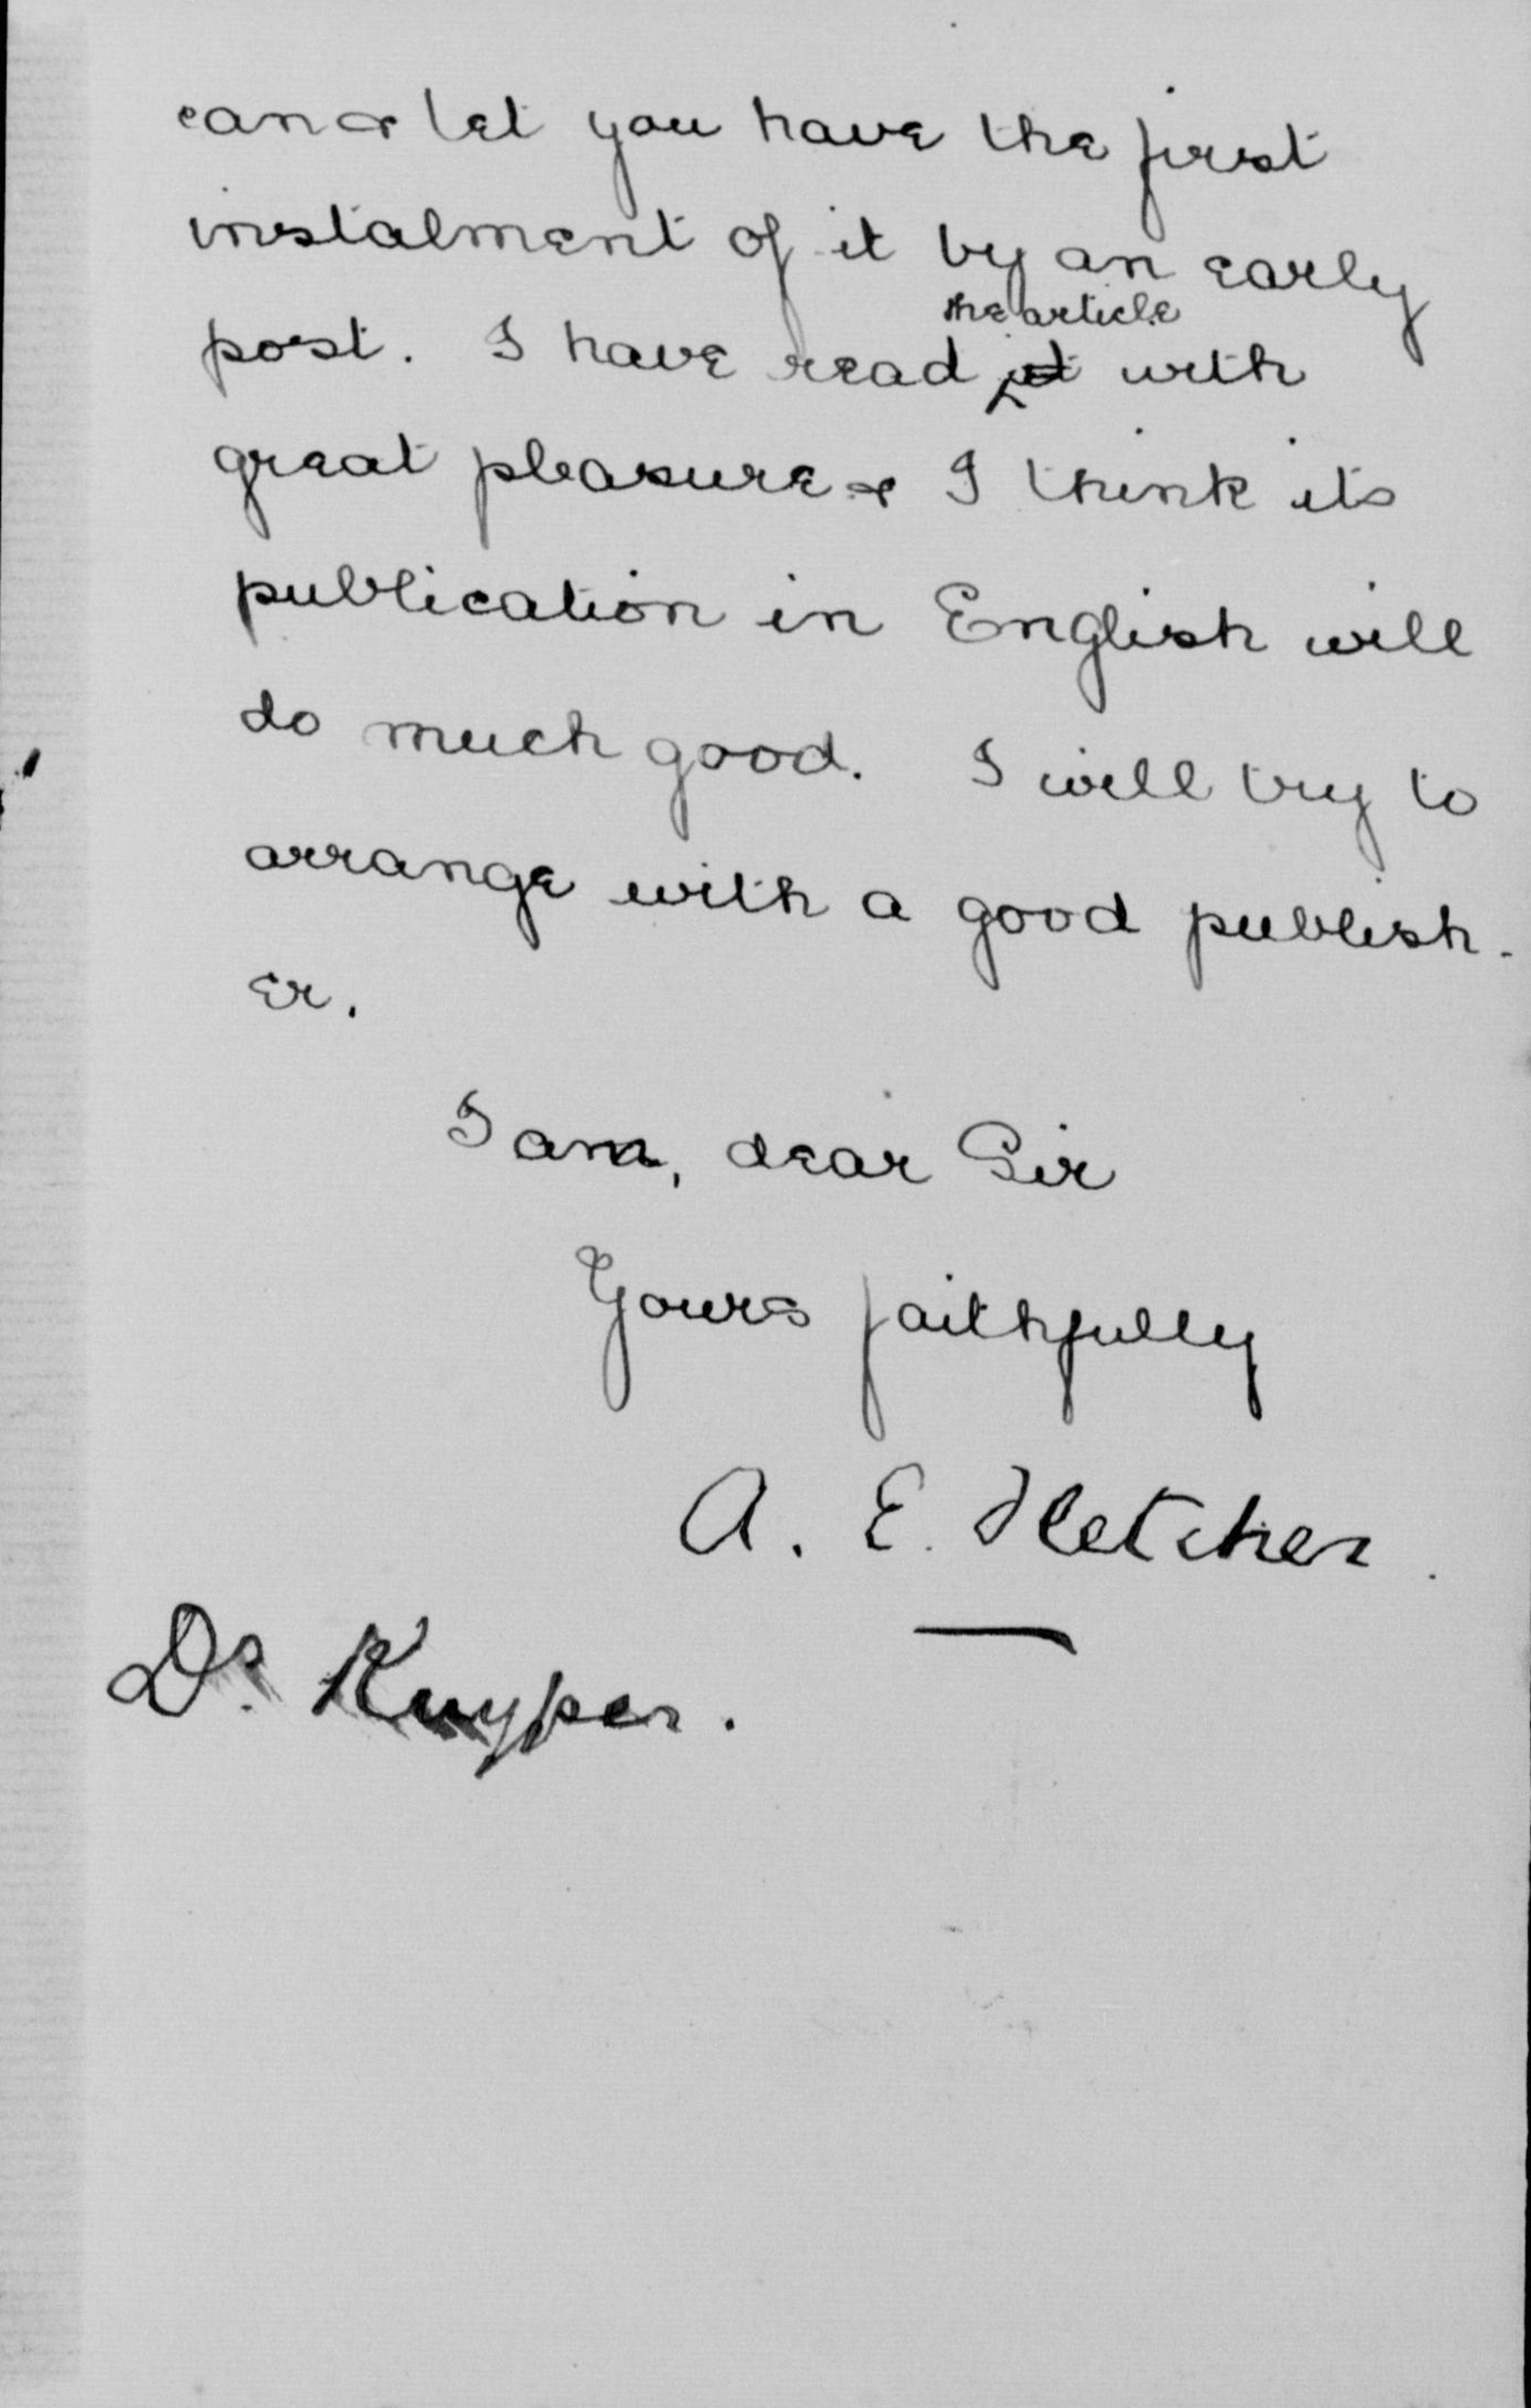 can & let you have the first
instalment of it by an early
the article
post. I have read it with
great pleasure & I think its
publication in English will
do much good. I will try to
arrange with a good publish-
er.
I am, dear Sir
Yours faithfully
A. E. Fletcher.
Dr. Kuyper.